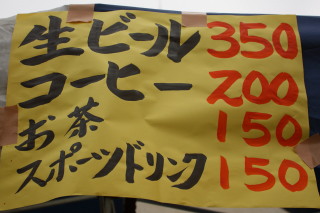 生ビール 350
コーヒー 200
お茶 150
スポーツドリンク 150